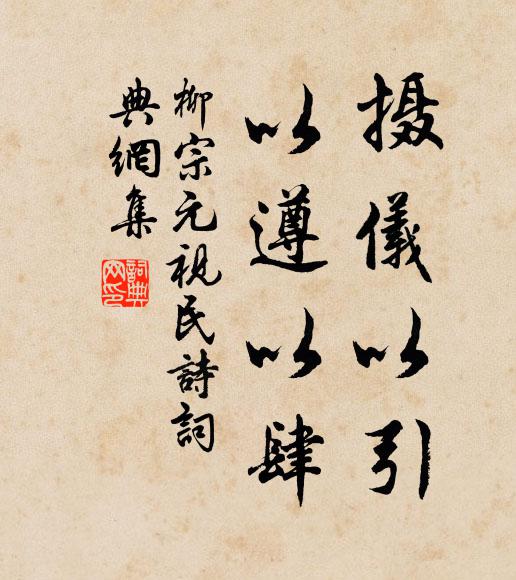 摄儀以引
以遵以肆
柳宗元視民詩詞
典網集
詞典